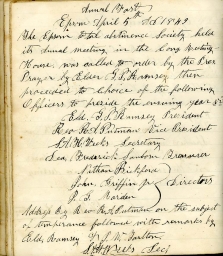 Annual Meeting
Epsom April 5th AD 1843
The Epsom Total abstinence Society held
its Annual meeting in the Long Meeting
House, was called to order by the Pres
Prayer by Elder G.S. Ramsey then
proceeded to choice of the following
Officers to preside the ensuing year
Elde. G.S. Ramsey President
Rev R.A. Putnam Vice President
Secretary
Dea. Frederick Sanborn Treasurer
Nathan Bickford
John Griffin Jr Directors
Address by Rev R.A. Putnam on the subject
of temperance followed with remarks by
Elde. Ramsey
Sec